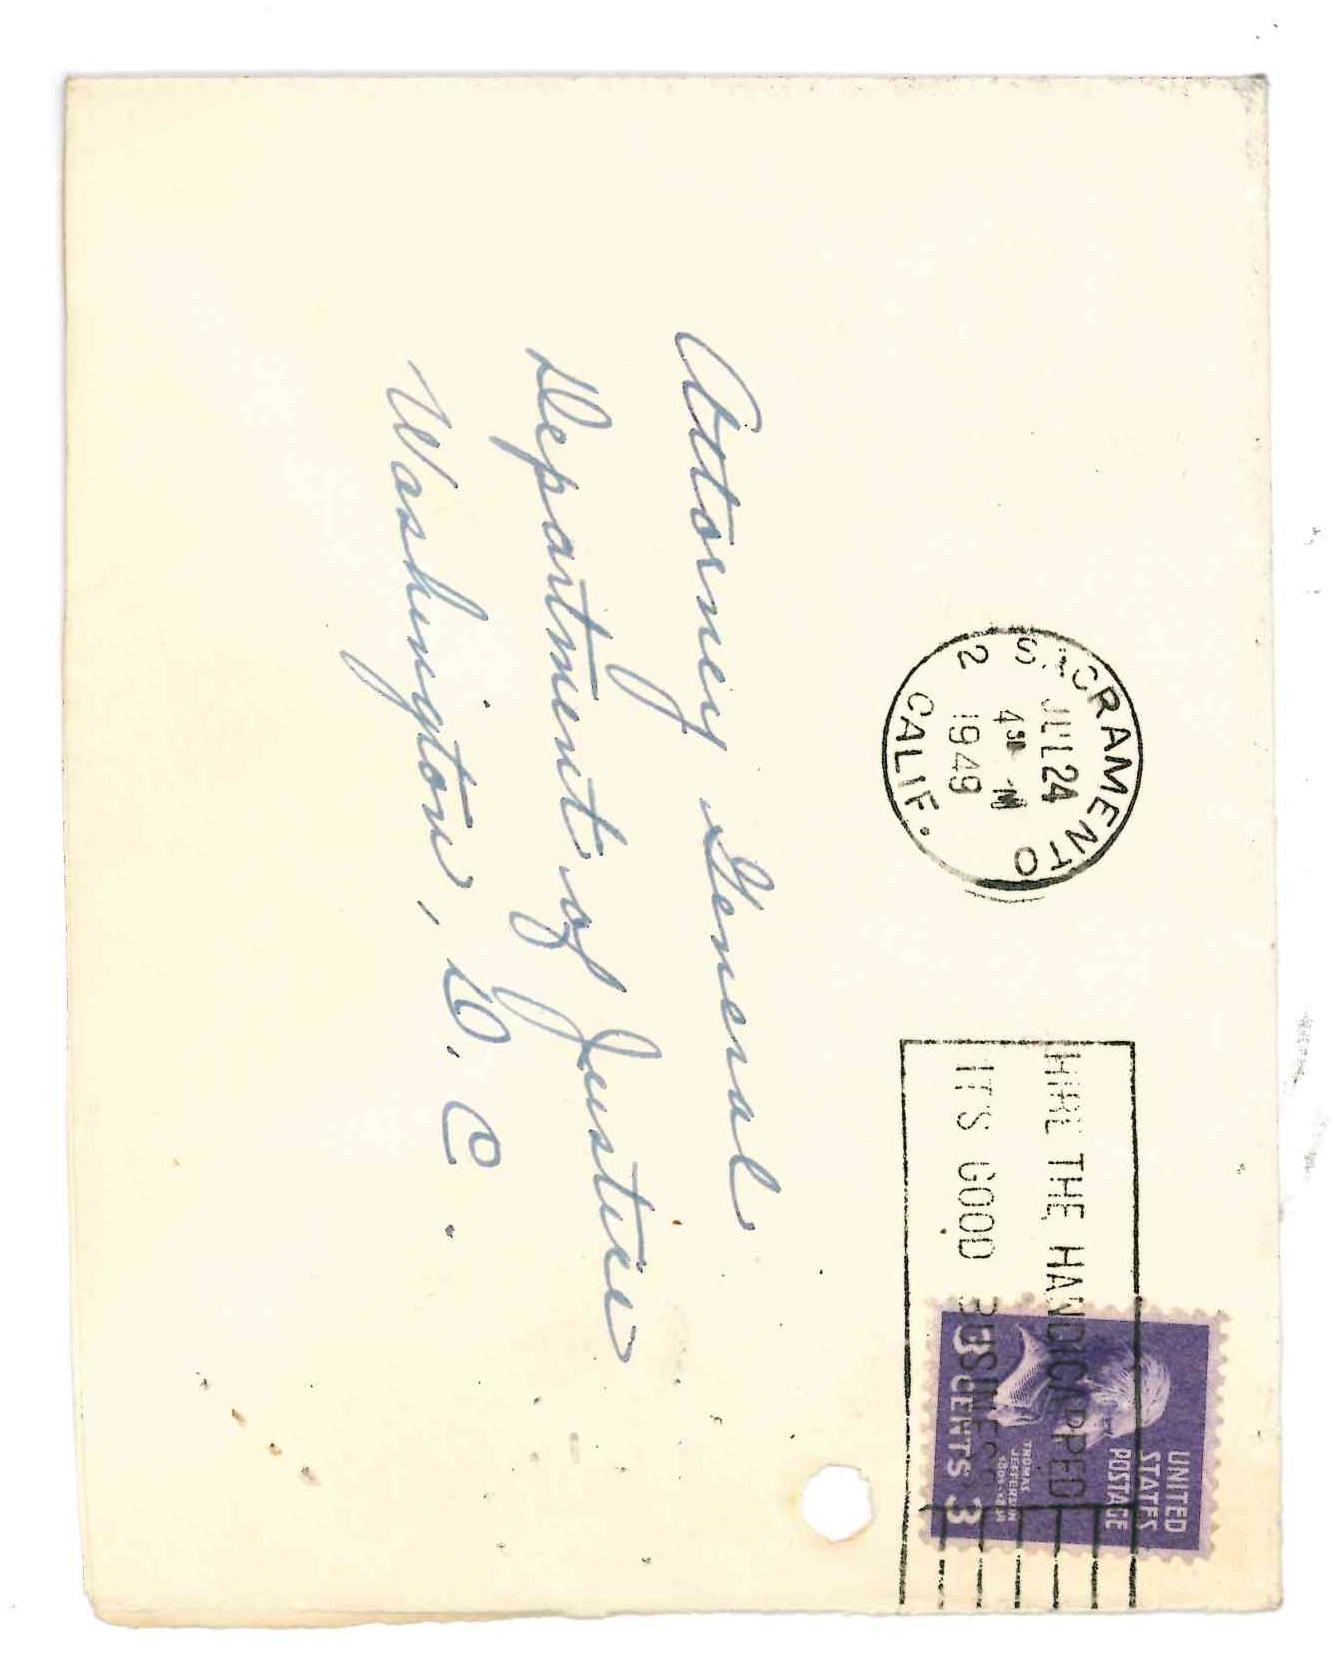 SACRAMENTO
JUL 24
4 30 M
1949
2
CALIF.
HIRE THE HANDICAPPED
IT'S GOOD BUSINESS
UNITED
STATES
POSTAGE
THOMAS
JEFFERSON
3 CENTS 3
Attorney General
Department of Justice
Washington, D. C.